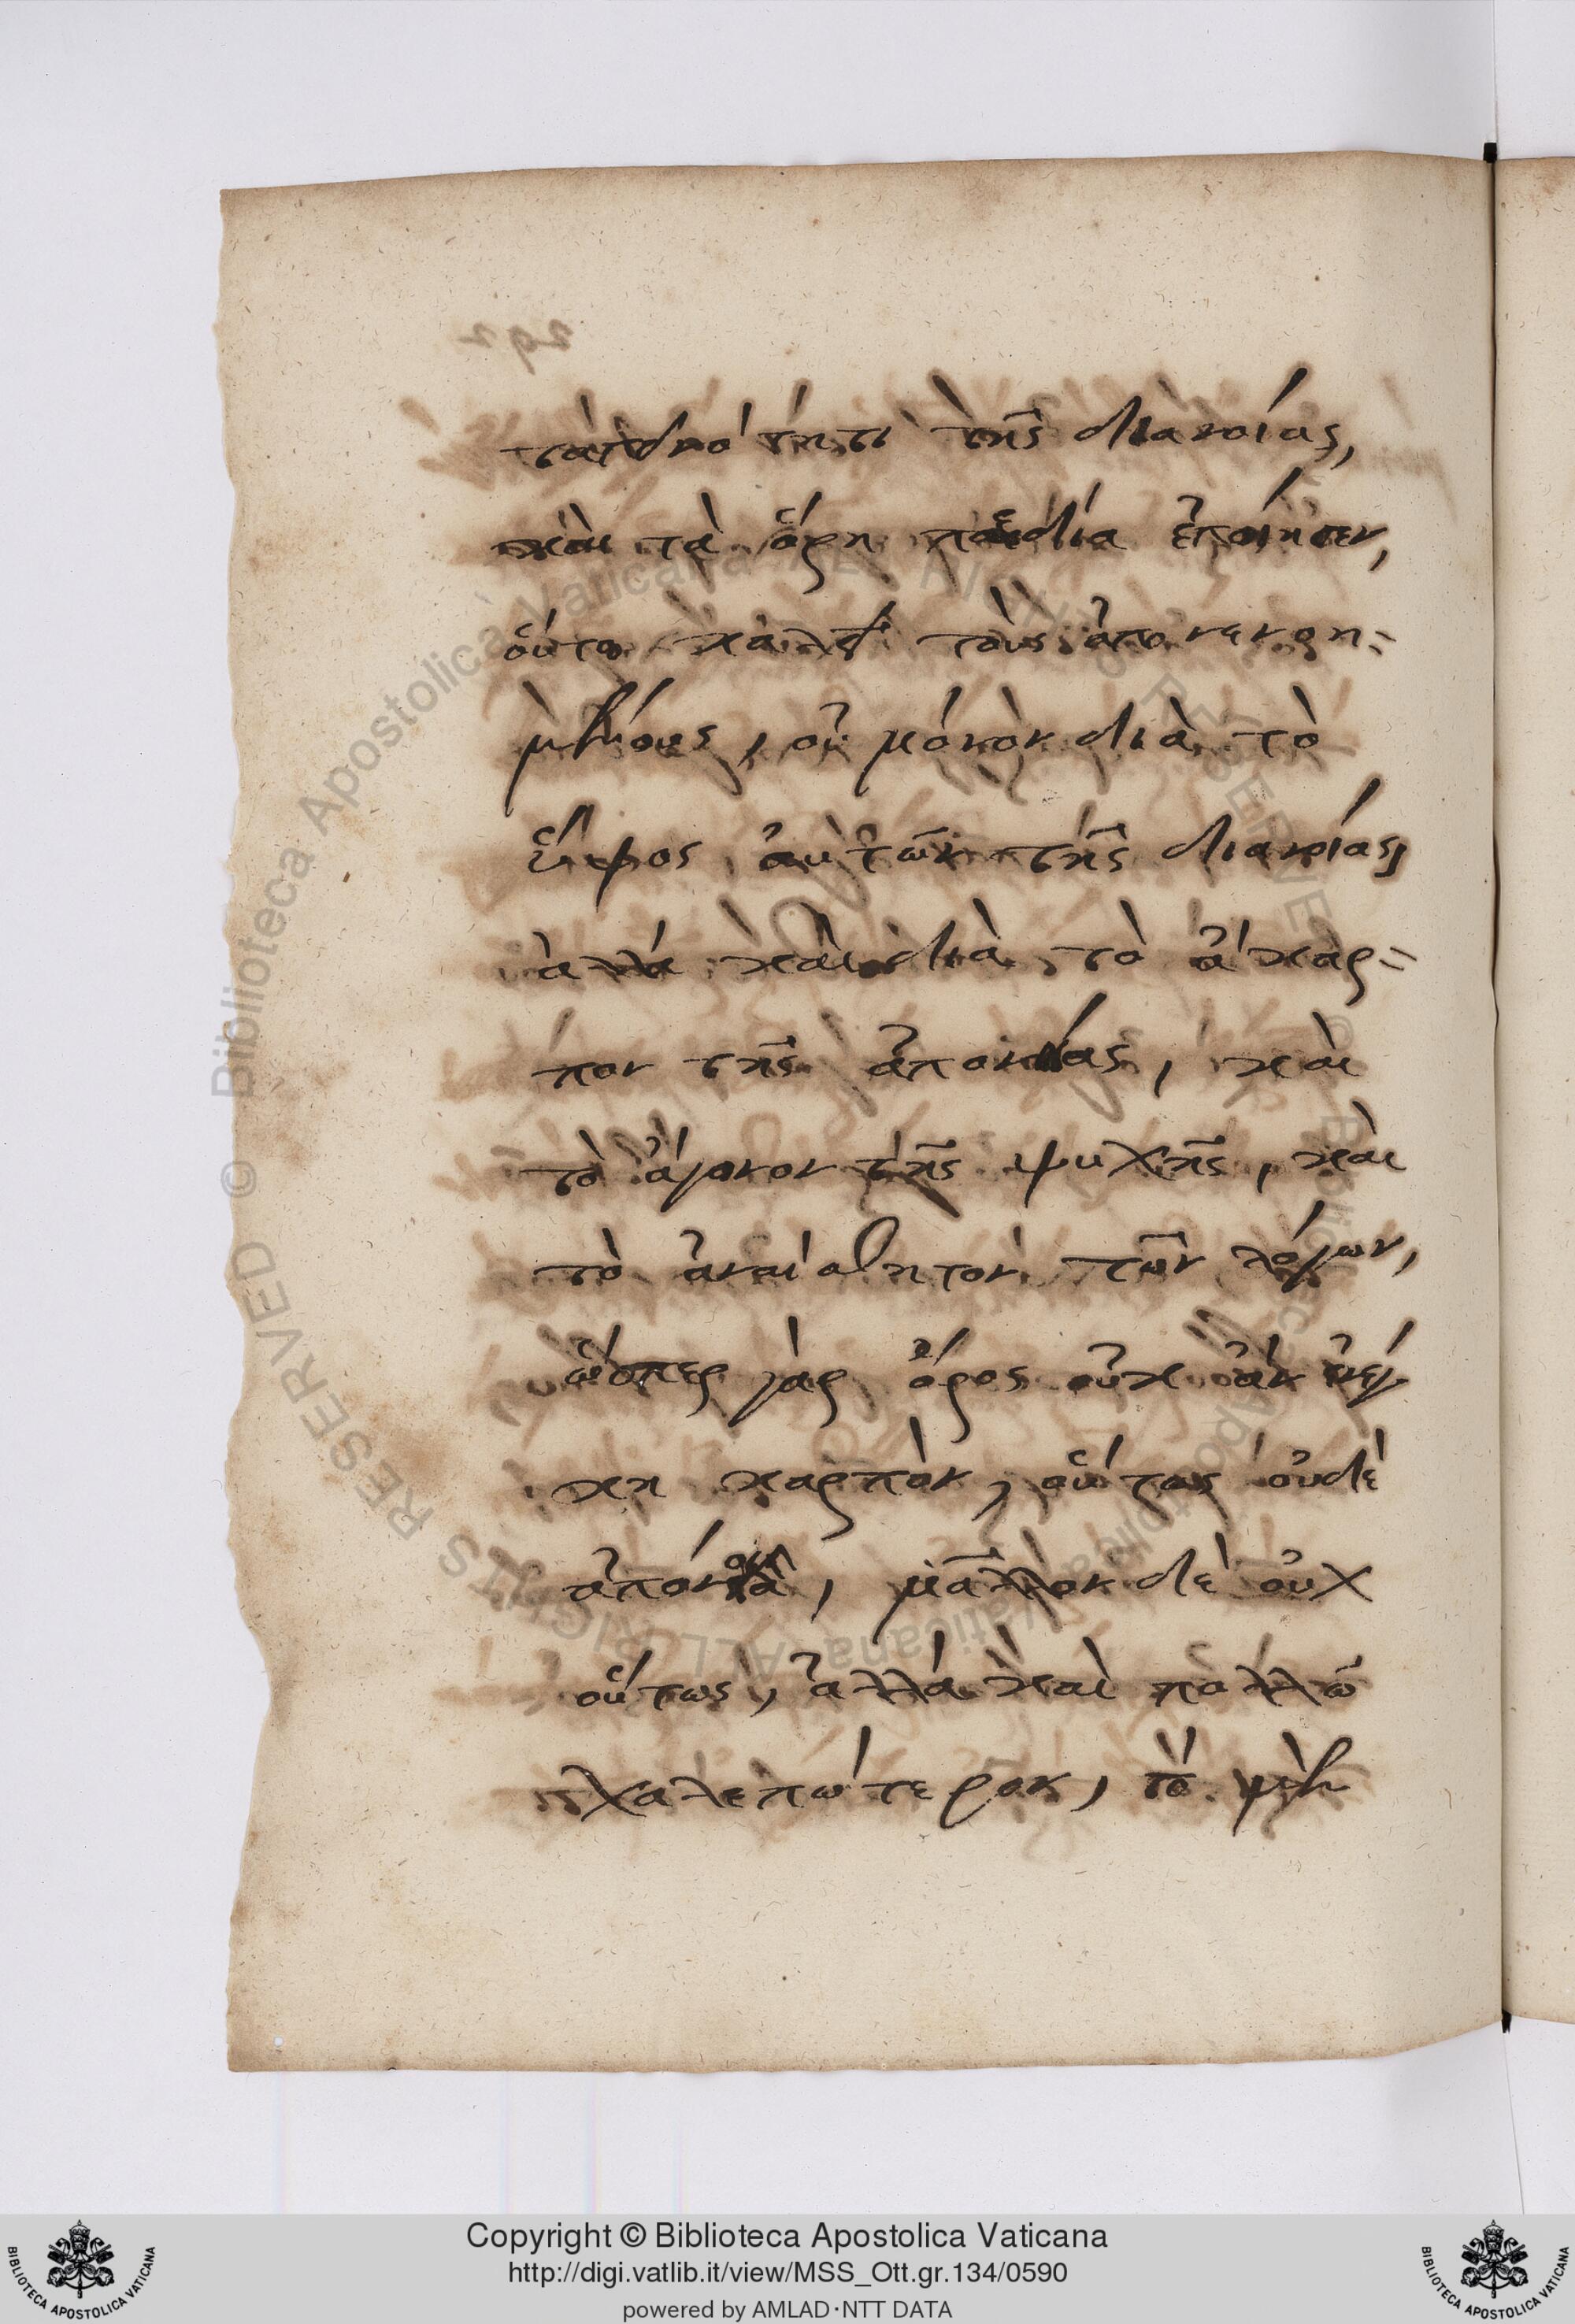 ταπεινότητι τῆς διανοίας,
καὶ τὰ ὄρη πεδία ἐποίησεν,
οὕτω καλεῖ τοὺς ἀπονενοη-
μένους, οὐ μόνον διὰ τὸ
ὕψος αὐτῶν τῆς διανοίας,
ἀλλὰ καὶ διὰ τὸ ἄκαρ-
πον τῆς ἀπονοίας, καὶ
τὸ ἄγονον τῆς ψυχῆς, καὶ
τὸ ἀναίσθητον τῶν λόγων,
ὥσπερ γὰρ ὄρος οὐκ ἂν ἐνέγ
κη καρπὸν, οὕτως οὐδὲ
ἀπόνοια, μᾶλλον δὲ οὐχ
οὕτως, ἀλλὰ καὶ πολλῶ
χαλεπώτερον, τὸ μὲν
292
© Biblioteca Apostolica Vaticana ALL RIGHTS RESERVED
Copyright © Biblioteca Apostolica Vaticana
http://digi.vatlib.it/view/MSS_Ott.gr.134/0590
powered by AMLAD·NTT DATA
BIBLIOTECA APOSTOLICA VATICANA
BIBLIOTECA APOSTOLICA VATICANA